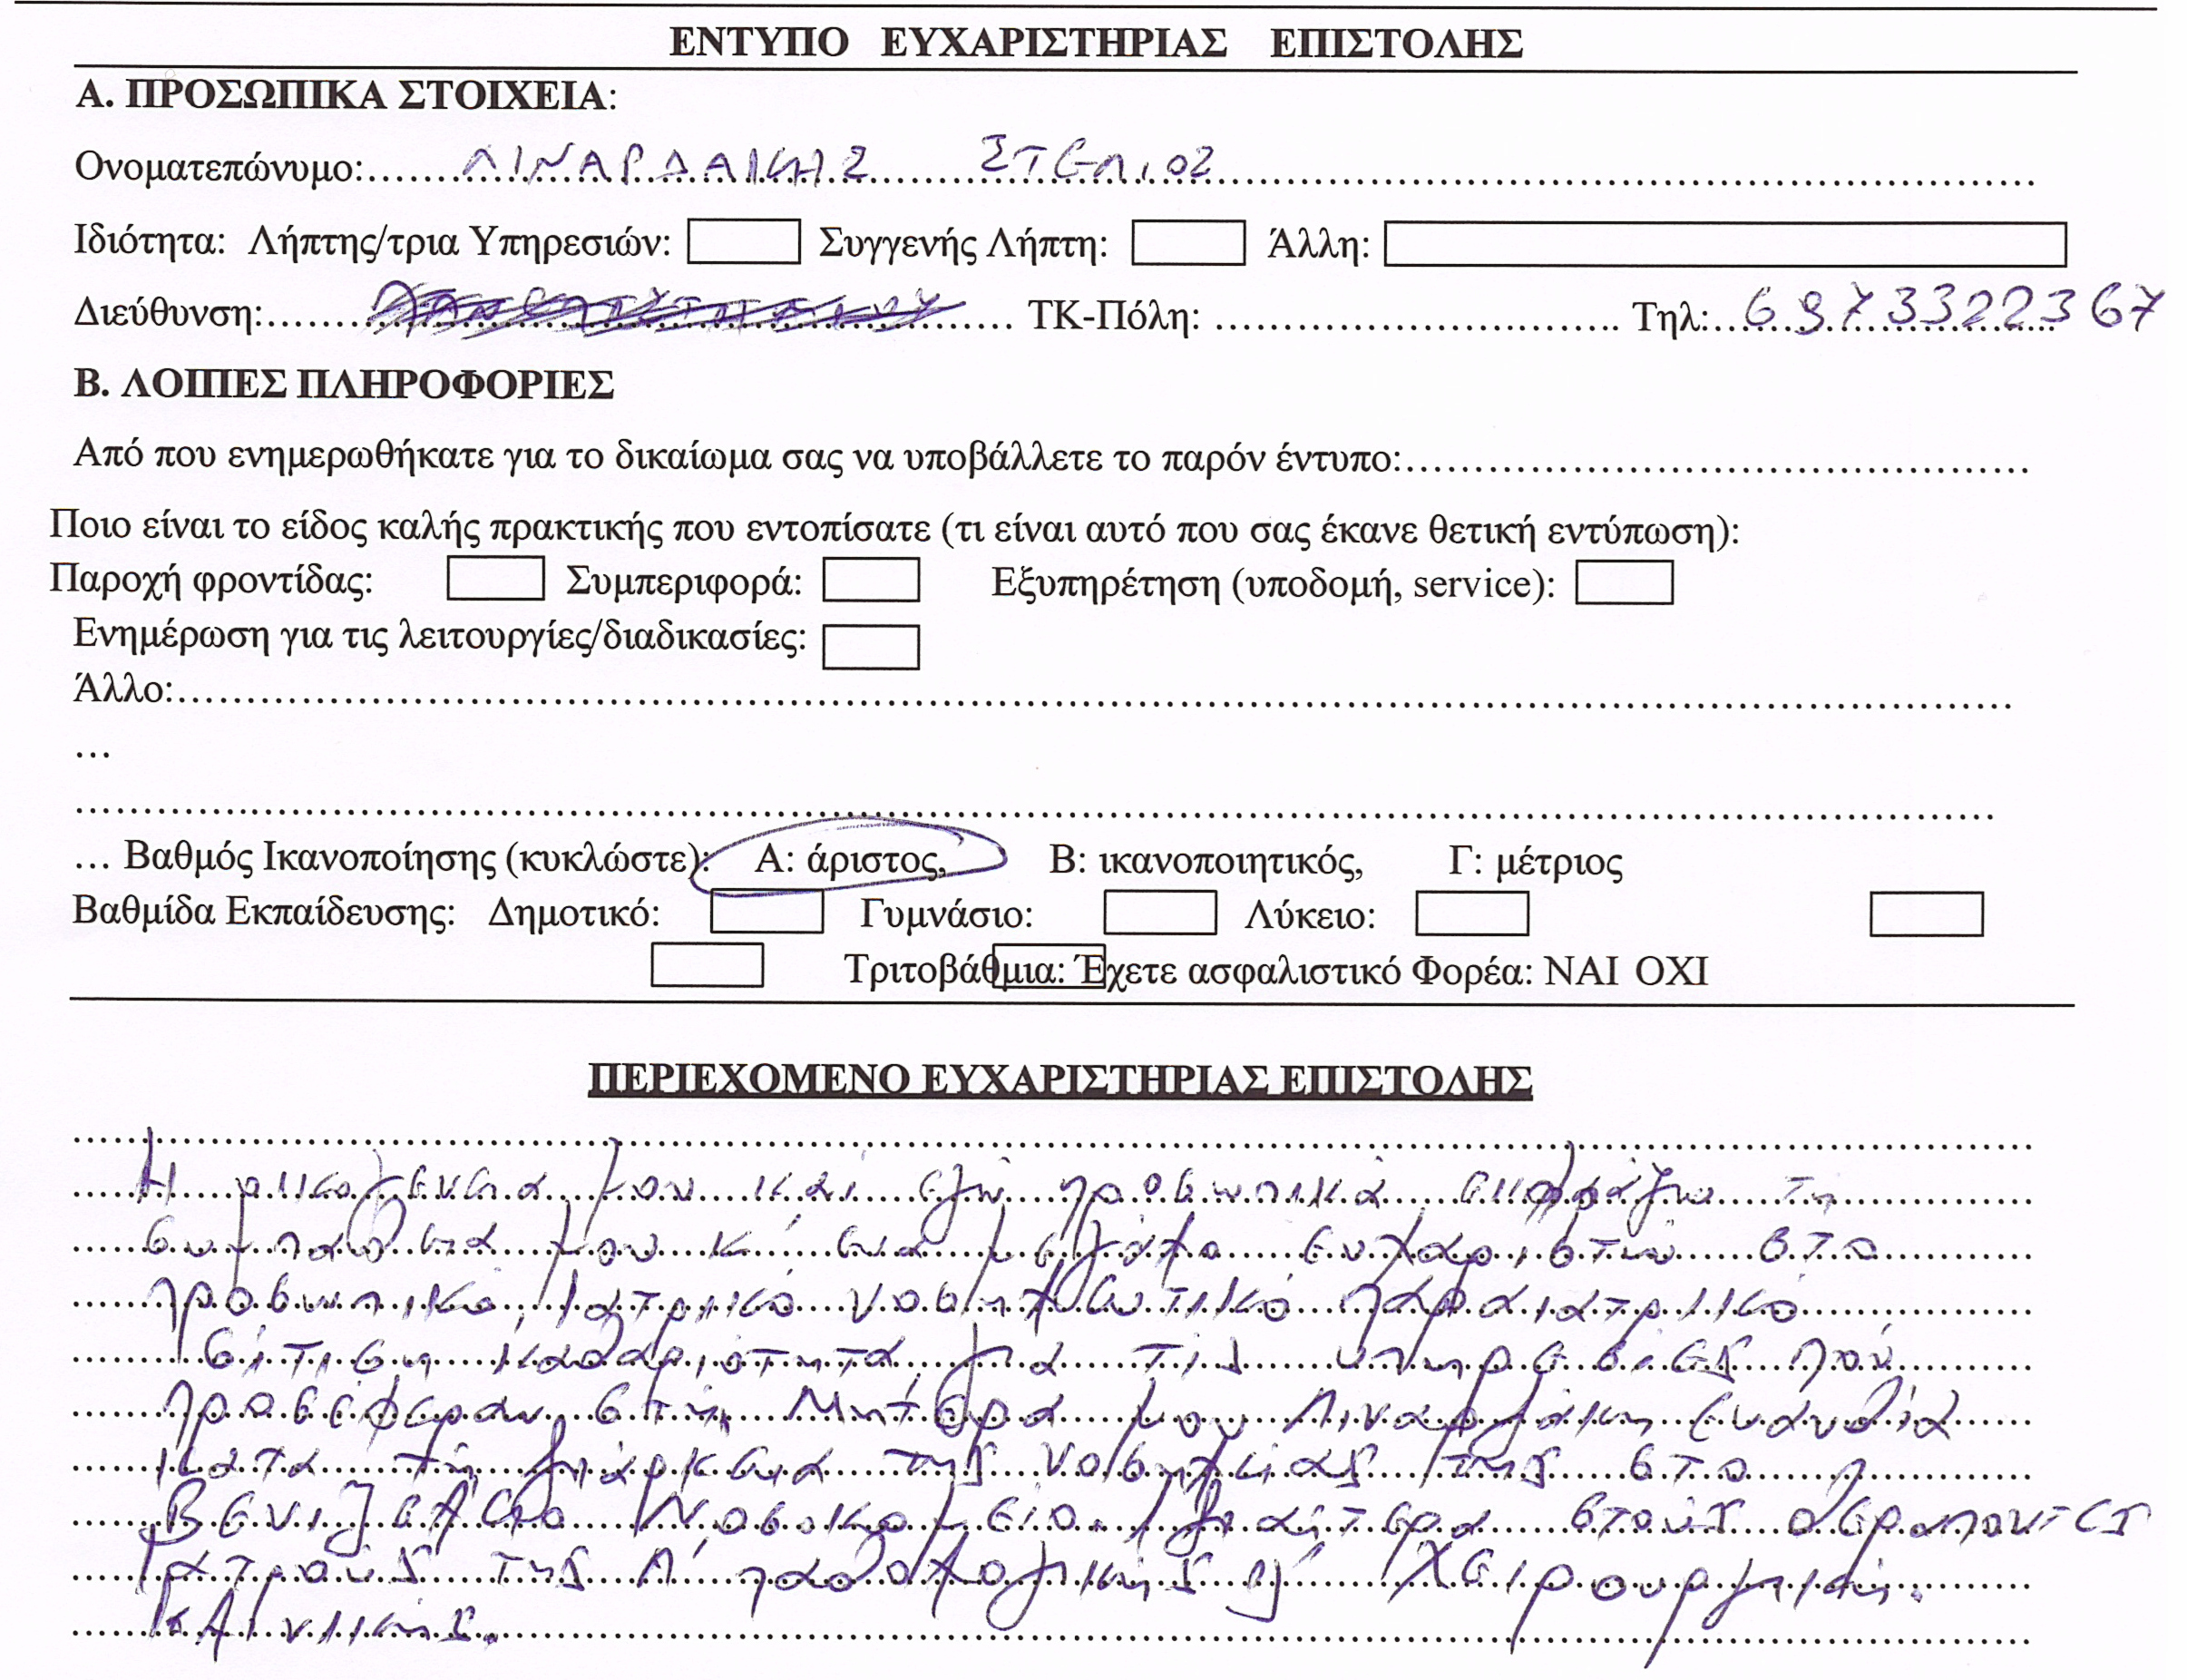 ΕΝΤΥΠΟ ΕΥΧΑΡΙΣΤΗΡΙΑΣ ΕΠΙΣΤΟΛΗΣ
Α. ΠΡΟΣΩΠΙΚΑ ΣΤΟΙΧΕΙΑ:
Ονοματεπώνυμο:......ΛΙΝΑΡΔΑΚΗΣ ΣΤΕΛΙΟΣ
Ιδιότητα: Λήπτης/τρια Υπηρεσιών: Συγγενής Λήπτη: Άλλη:
Διεύθυνση:...... ΤΚ-Πόλη: ...... Τηλ:...6973322367
Β. ΛΟΙΠΕΣ ΠΛΗΡΟΦΟΡΙΕΣ
Από που ενημερωθήκατε για το δικαίωμα σας να υποβάλλετε το παρόν έντυπο:......
Ποιο είναι το είδος καλής πρακτικής που εντοπίσατε (τι είναι αυτό που σας έκανε θετική εντύπωση):
Παροχή φροντίδας: Συμπεριφορά: Εξυπηρέτηση (υποδομή, service):
Ενημέρωση για τις λειτουργίες/διαδικασίες:
Άλλο:......
...
......
... Βαθμός Ικανοποίησης (κυκλώστε): Α: άριστος, Β: ικανοποιητικός, Γ: μέτριος
Βαθμίδα Εκπαίδευσης: Δημοτικό: Γυμνάσιο: Λύκειο:
Τριτοβάθμια: Έχετε ασφαλιστικό Φορέα: ΝΑΙ ΟΧΙ
ΠΕΡΙΕΧΟΜΕΝΟ ΕΥΧΑΡΙΣΤΗΡΙΑΣ ΕΠΙΣΤΟΛΗΣ
Η οικογένεια μου και εγώ προσωπικά εκφράζω τη
συμπάθεια μου κ' ένα μεγάλο ευχαριστώ στο
προσωπικό, Ιατρικό νοσηλευτικό παραϊατρικό
σίτιση καθαριότητα για τις υπηρεσίες πού
προσέφεραν στήν Μητέρα μου Λιναρδάκη Ευανθία
κατά τη διάρκεια της νοσηλείας της στο
Βενιζέλειο Νοσοκομείο. Ιδιαίτερα στούς θεράποντες
Ιατρούς της Α' παθολογικής κ' Χειρουργικής
κλινικής.